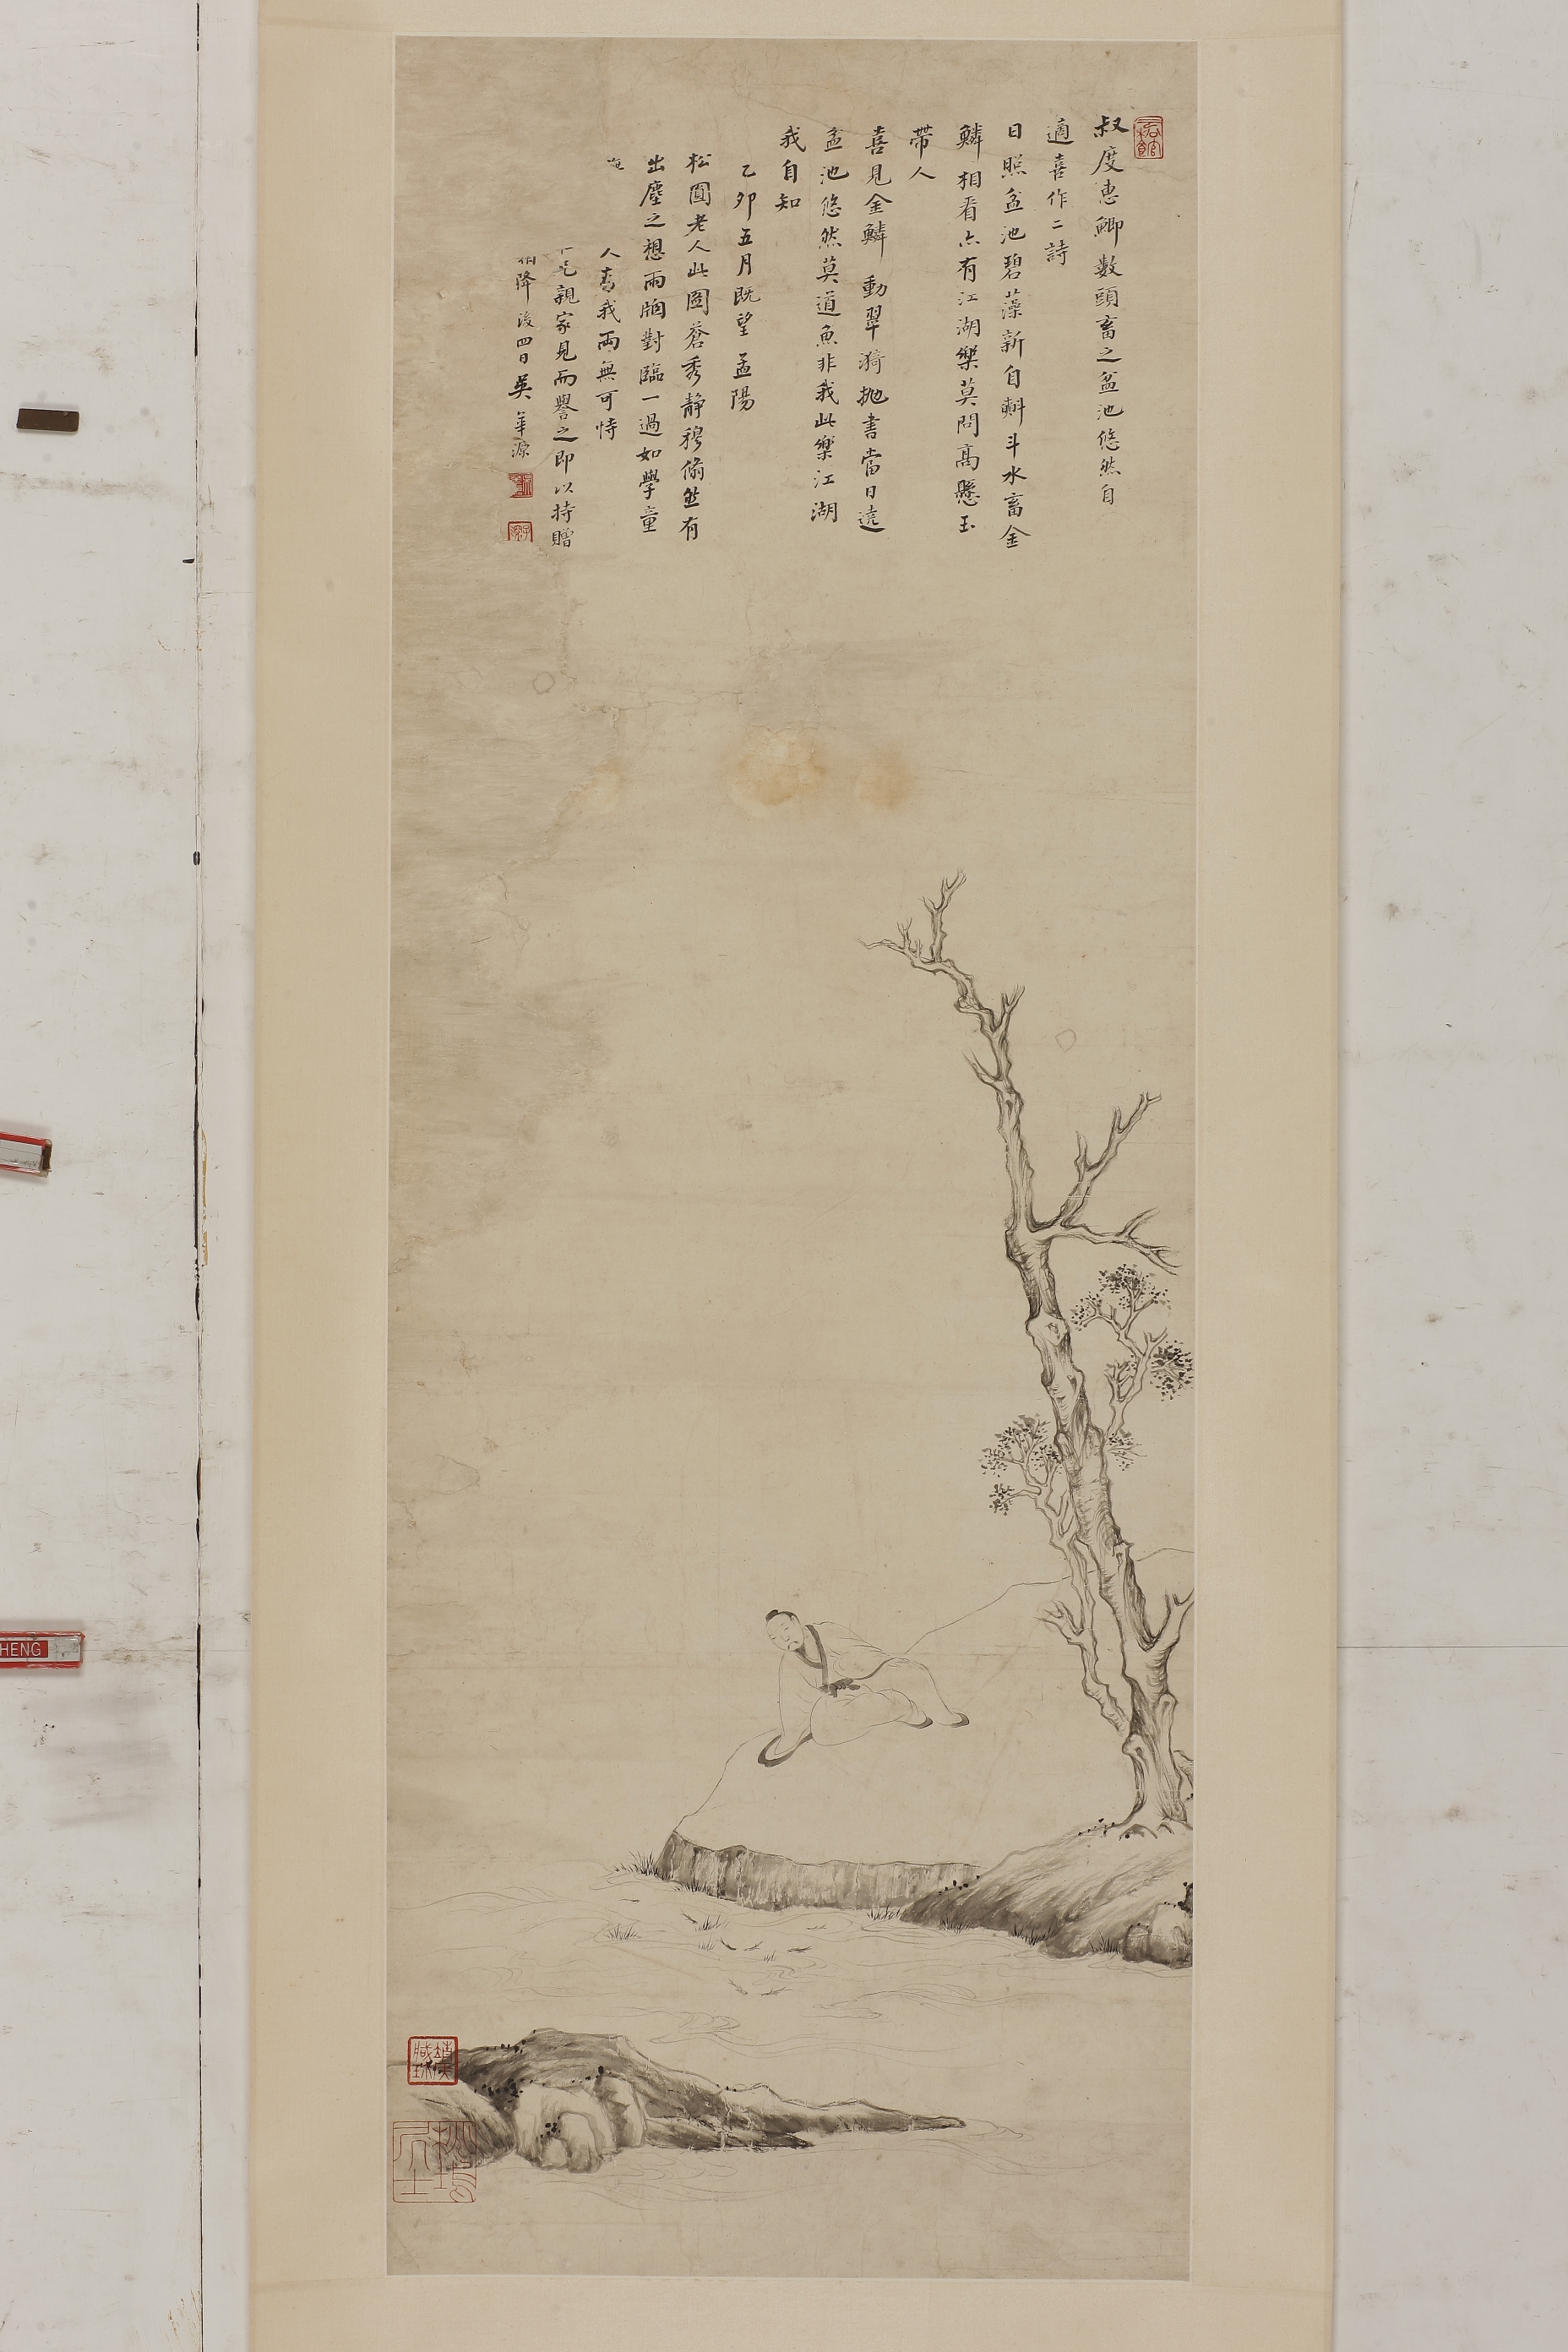 叔度惠鯽數頭畜之盆池悠然自
適喜作二詩
日照盆池碧藻新自斟斗水畜金
鱗相看亦有江湖樂莫問高懸玉
帶人
喜見金鱗動翠漪拋書當日遶
盆池悠然莫道魚非我此樂江湖
我自知
乙卯五月既望孟陽
松圓老人此圖蒼秀靜穆翛然有
出塵之想雨牕對臨一過如學童
人書我兩無可恃
親家見而譽之即以持贈
降後四日吳
HENG